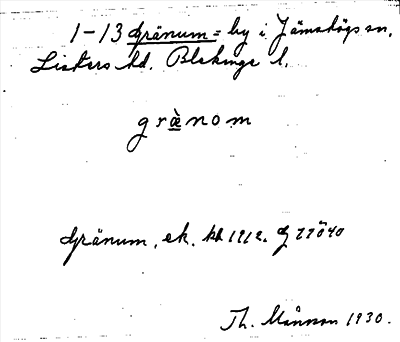 1-13 Gränum = by i Jämshögs sn,
Listers hd. Blekinge l.
grǟnom
Gränum, ek. kb 1912. G 22ö40
Th. Månsson 1930.